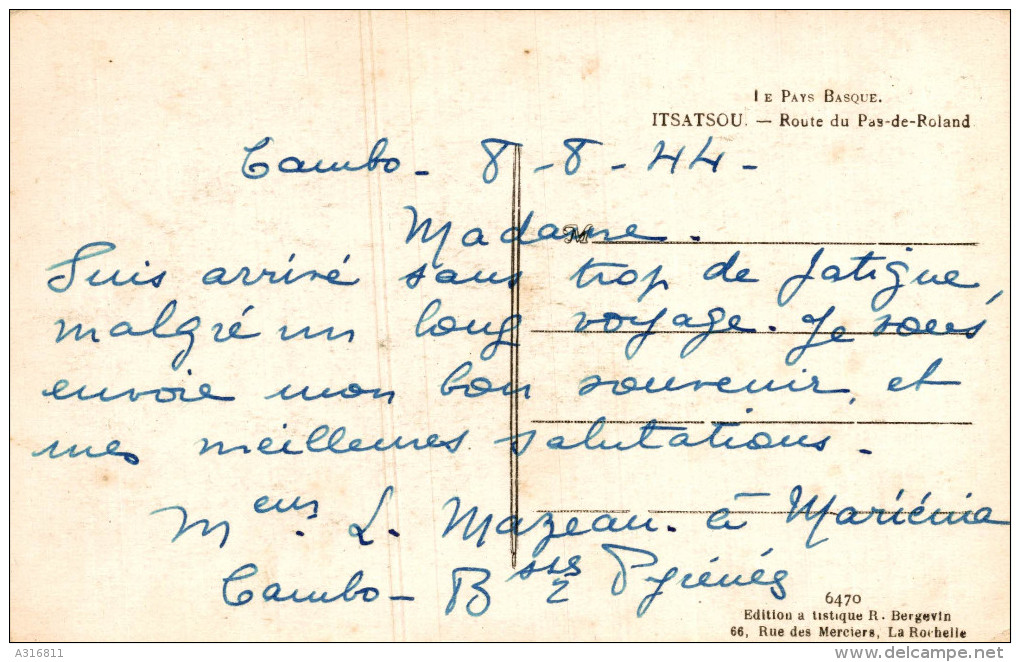 Le Pays Basque.
ITSATSOU. — Route du Pas-de-Roland
Cambo - 8 - 8 - 44 -
M
Madame.
Suis arrivé sans trop de fatigue,
malgré un long voyage. Je vous
envoie mon bon souvenir, et
mes meilleures salutations.
Meur. L. Mazeau. à Mariénia
Cambo - Bses Pyrénés
6470
Edition a tistique R. Bergevin
66, Rue des Merciers, La Rochelle
A316811
delcampe.net